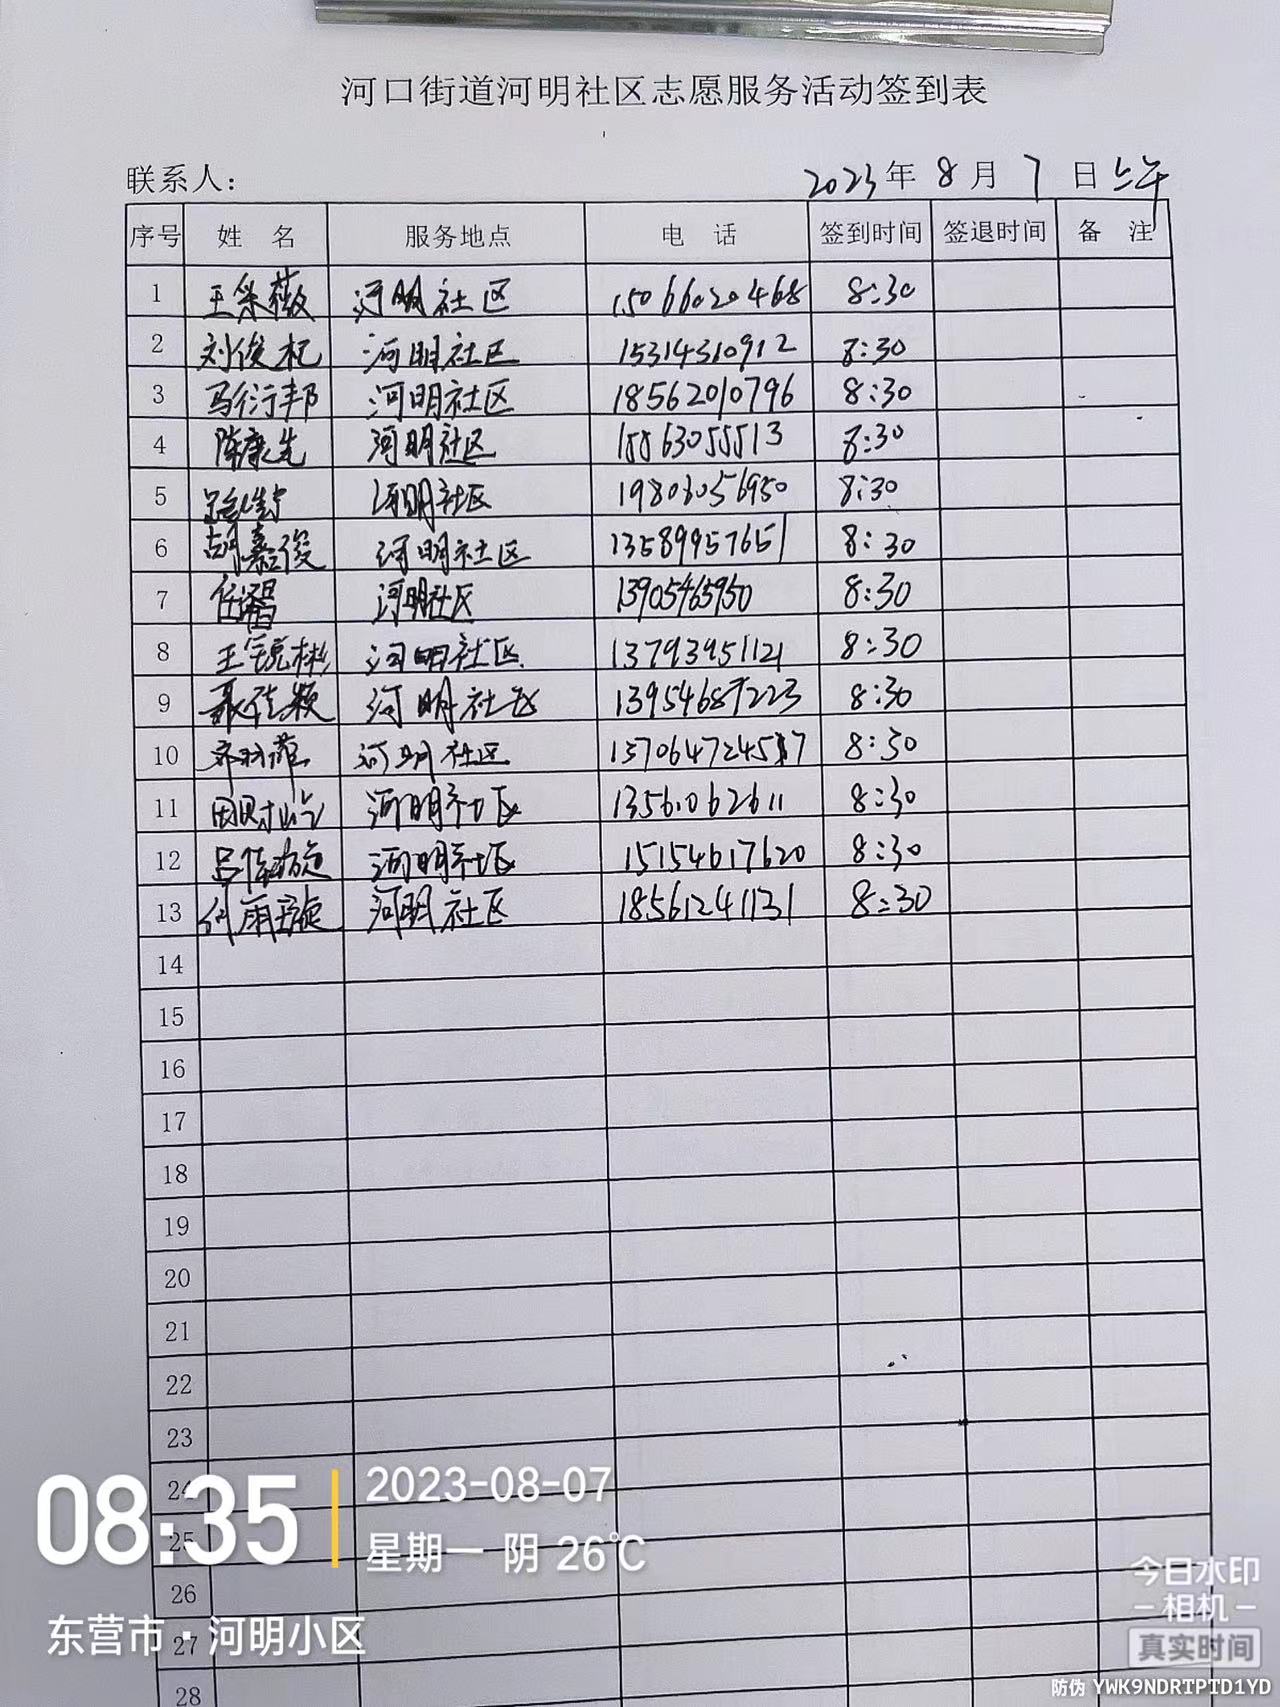 河口街道河明社区志愿服务活动签到表
联系人： 2023年 8月 7日上午
序号 姓 名 服务地点 电 话 签到时间 签退时间 备 注
1 王采薇 河明社区 15066020468 8:30
2 刘俊杞 河明社区 15314310912 8:30
3 马衍邦 河明社区 18562010796 8:30
4 陈康先 河明社区 15563055513 8:30
5 河明社区 19803056950 8:30
6 胡嘉俊 河明社区 13589957651 8:30
7 河明社区 13905465950 8:30
8 王锐彬 河明社区 13793951121 8:30
9 聂佳颖 河明社区 13954687223 8:30
10 河明社区 8:30
11 河明社区 13561062611 8:30
12 河明社区 15154617620 8:30
13 何雨璇 河明社区 18561241131 8:30
14
15
16
17
18
19
20
21
22
23
24
25
26
27
28
08:35
2023-08-07
星期一 阴 26℃
东营市·河明小区
今日水印
-相机-
真实时间
防伪 YWK9NDRTPTD1YD